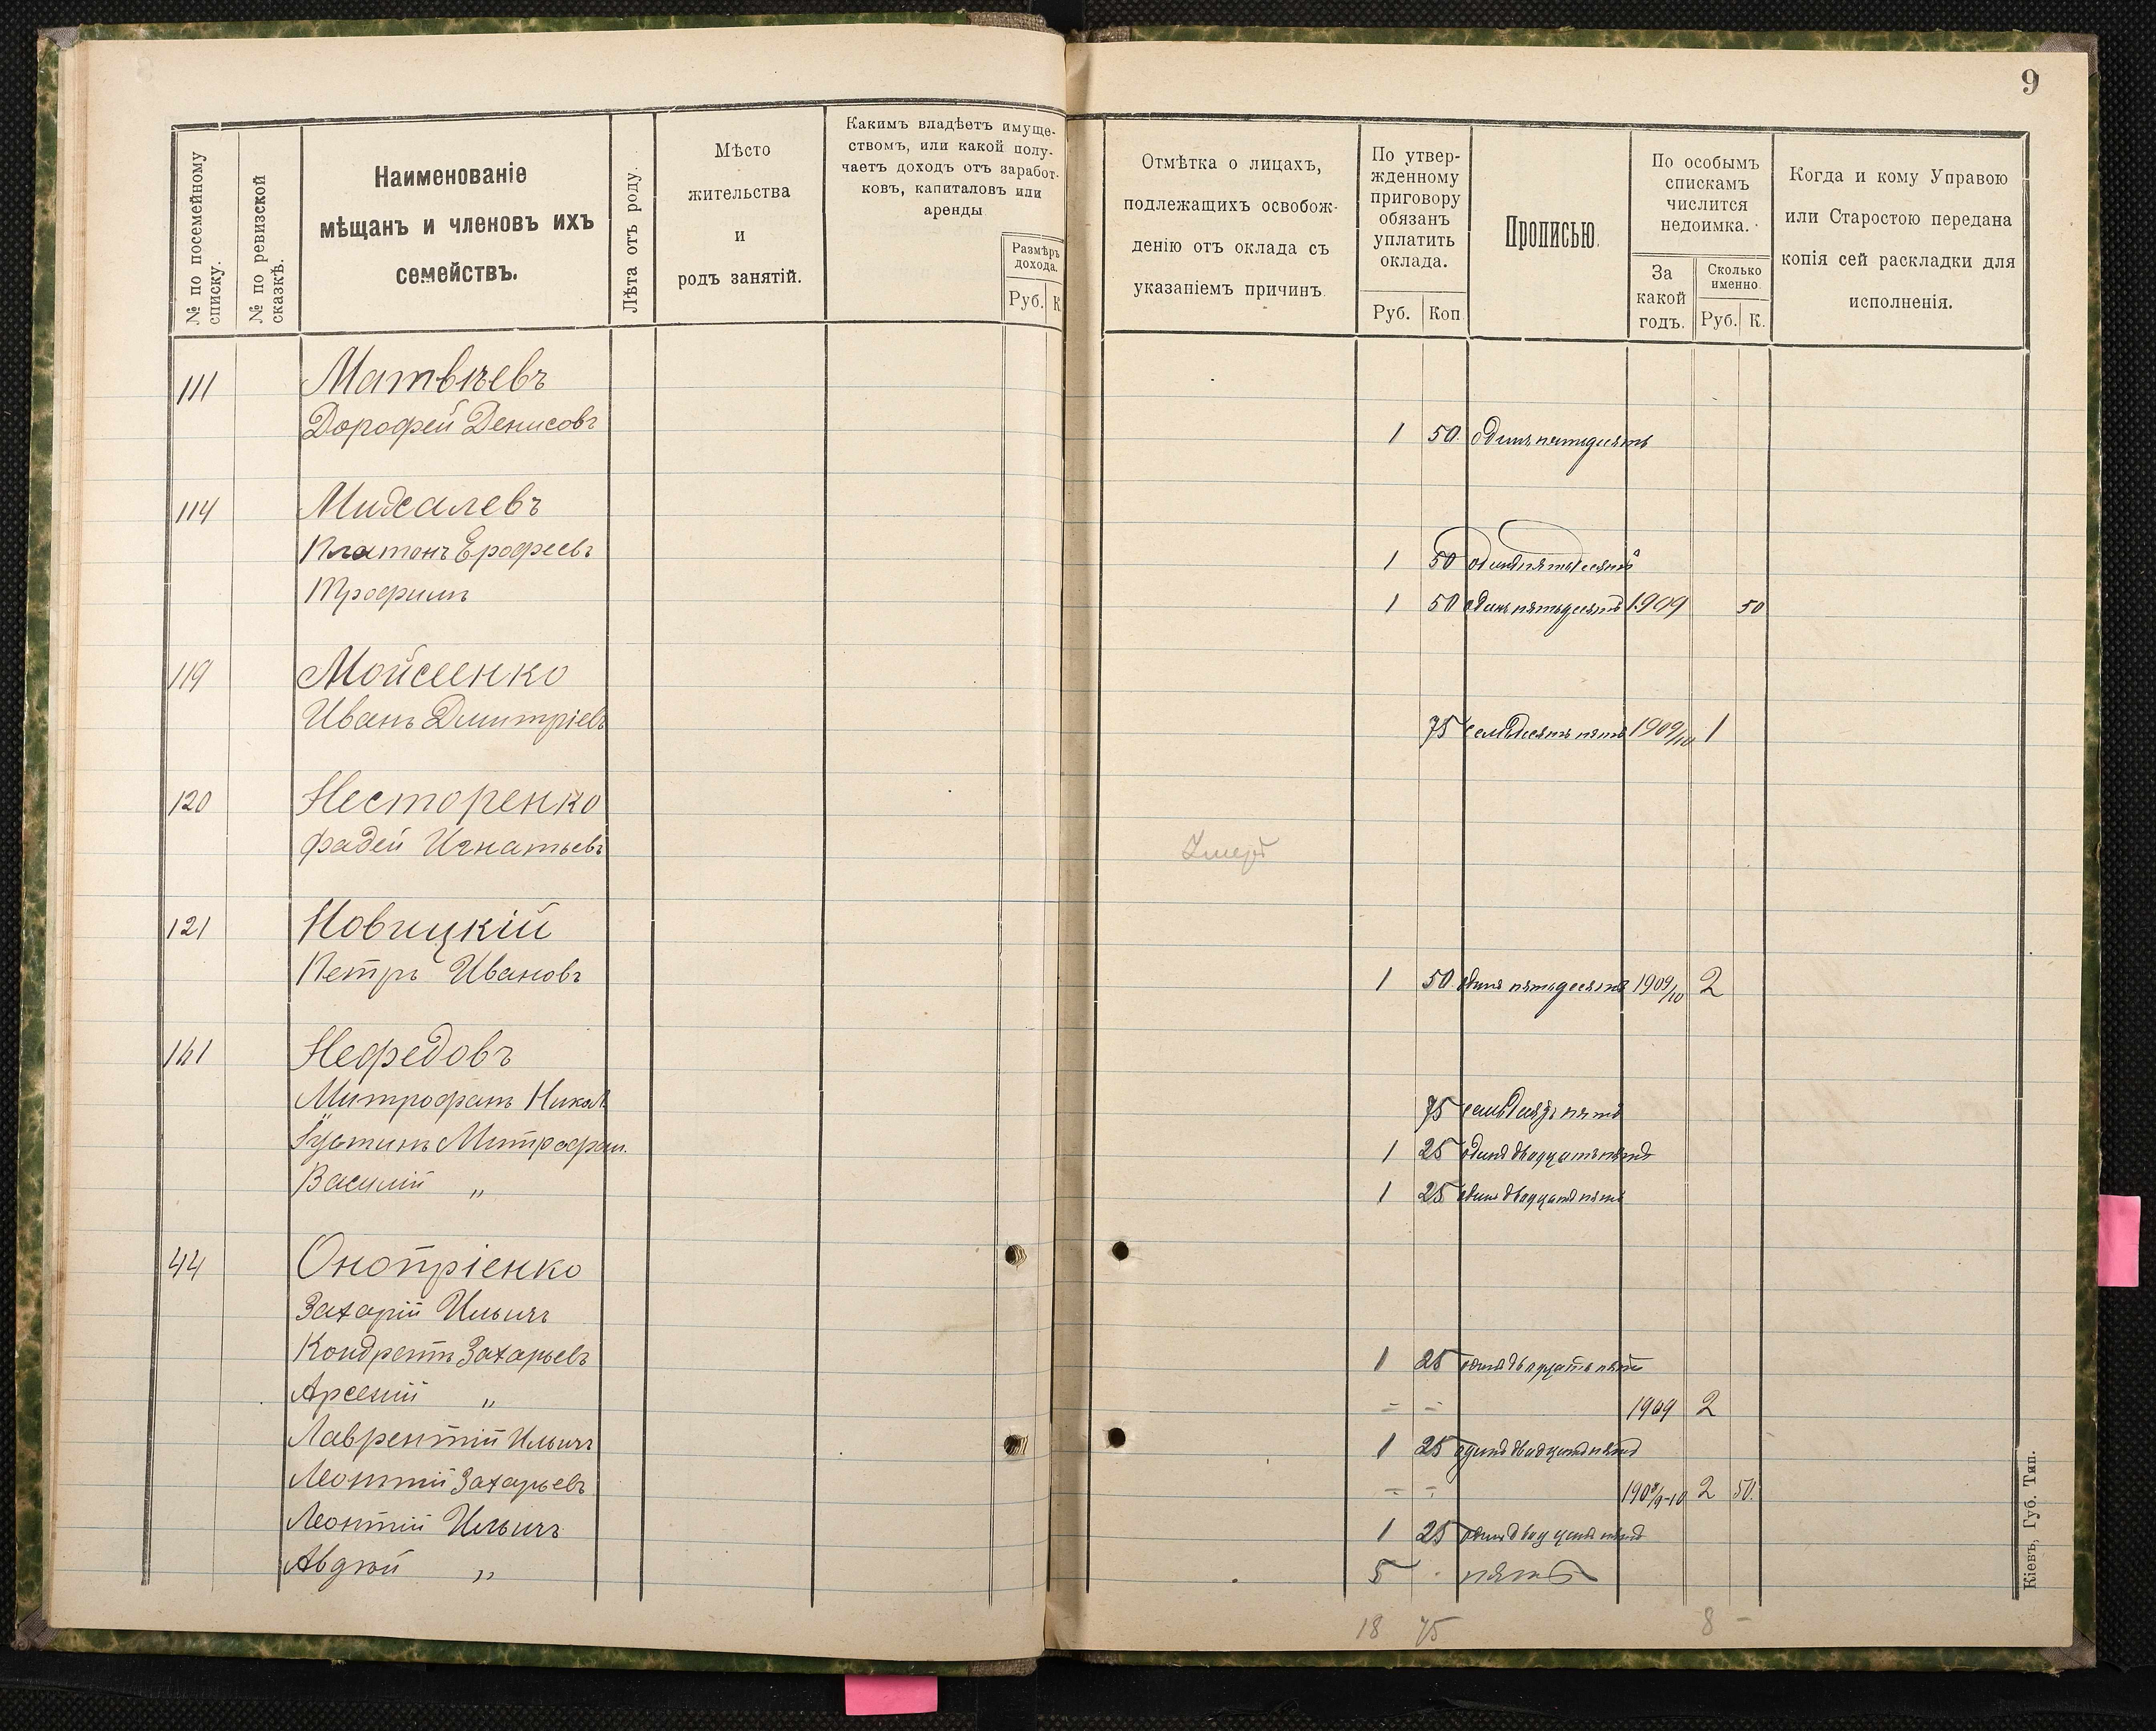 9
№ по посемейному списку.
№ по ревизской сказкѣ.
Наименованіе
мѣщанъ и членовъ ихъ
семействъ.
Лѣта отъ роду.
Мѣсто
жительства
и
родъ занятій.
Какимъ владѣетъ имуще-
ствомъ, или какой полу-
чаетъ доходъ отъ заработ-
ковъ, капиталовъ или
аренды
Размѣръ
дохода.
Руб. К
Отмѣтка о лицахъ,
подлежащихъ освобож-
денію отъ оклада съ
указаніемъ причинъ
По утвер-
жденному
приговору
обязанъ
уплатить
оклада.
Руб. Коп.
Прописью.
По особымъ
спискамъ
числится
недоимка.
За
какой
годъ.
Сколько
именно.
Руб. К.
Когда и кому Управою
или Старостою передана
копія сей раскладки для
исполненія.
111 Матвѣевъ
Дорофей Денисовъ 1 50. одинъ пятьдесятъ
114 Михалевъ
Платонъ Ерофеевъ 1 50 одинъ пятьдесятъ
Трофимъ 1 50 одинъ пятьдесятъ 1909 50
119 Мойсеенко
Иванъ Дмитріевъ 75 семьдесятъ пять 1909/10 1
120 Несторенко
Фадей Игнатьевъ Умеръ
121 Новицкій
Петръ Ивановъ 1 50. одинъ пятьдесятъ 1909/10 2
141 Нефедовъ
Митрофанъ Никол 75 семьдесятъ пять
Іустинъ Митрофан. 1 25 одинъ двадцать пять
Василій „ 1 25 одинъ двадцать пять
44 Онопріенко
Захарій Ильичъ
Кондратъ Захарьевъ 1 25 одинъ двадцать пять
Арсеній „ - - 1909 2
Лаврентій Ильичъ 1 25 одинъ двадцать пять
Леонтій Захарьевъ - - 1908/9-10 2 50.
Леонтій Ильичъ 1 25 одинъ двадцать пять
Авдѣй „ 5 . пять
18 75 8 -
Кіевъ, Губ. Тип.